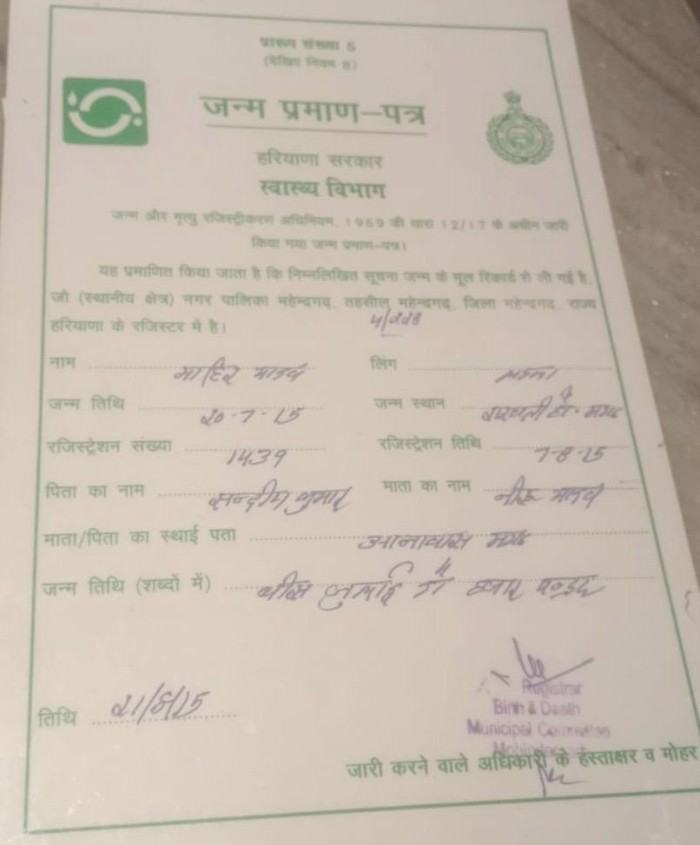 प्रारूप संख्या 5
(देखिए नियम 8)
जन्म प्रमाण-पत्र
हरियाणा सरकार
स्वास्थ्य विभाग
जन्म और मृत्यु रजिस्ट्रीकरण अधिनियम, 1969 की धारा 12/17 के अधीन जारी
किया गया जन्म प्रमाण-पत्र।
यह प्रमाणित किया जाता है कि निम्नलिखित सूचना जन्म के मूल रिकार्ड से ली गई है,
जो (स्थानीय क्षेत्र) नगर पालिका महेन्द्रगढ़, तहसील महेन्द्रगढ़, जिला महेन्द्रगढ़, राज्य
हरियाणा के रजिस्टर में है।
नाम माहिर यादव लिंग लड़का
जन्म तिथि 20-7-15 जन्म स्थान
रजिस्ट्रेशन संख्या 1439 रजिस्ट्रेशन तिथि 7-8-15
पिता का नाम सन्दीप कुमार माता का नाम नीरू यादव
माता/पिता का स्थाई पता
जन्म तिथि (शब्दों में) बीस जुलाई दो हजार पन्द्रह
तिथि 21/8/15
Registrar
Birth & Death
Municipal Committee
जारी करने वाले अधिकारी के हस्ताक्षर व मोहर